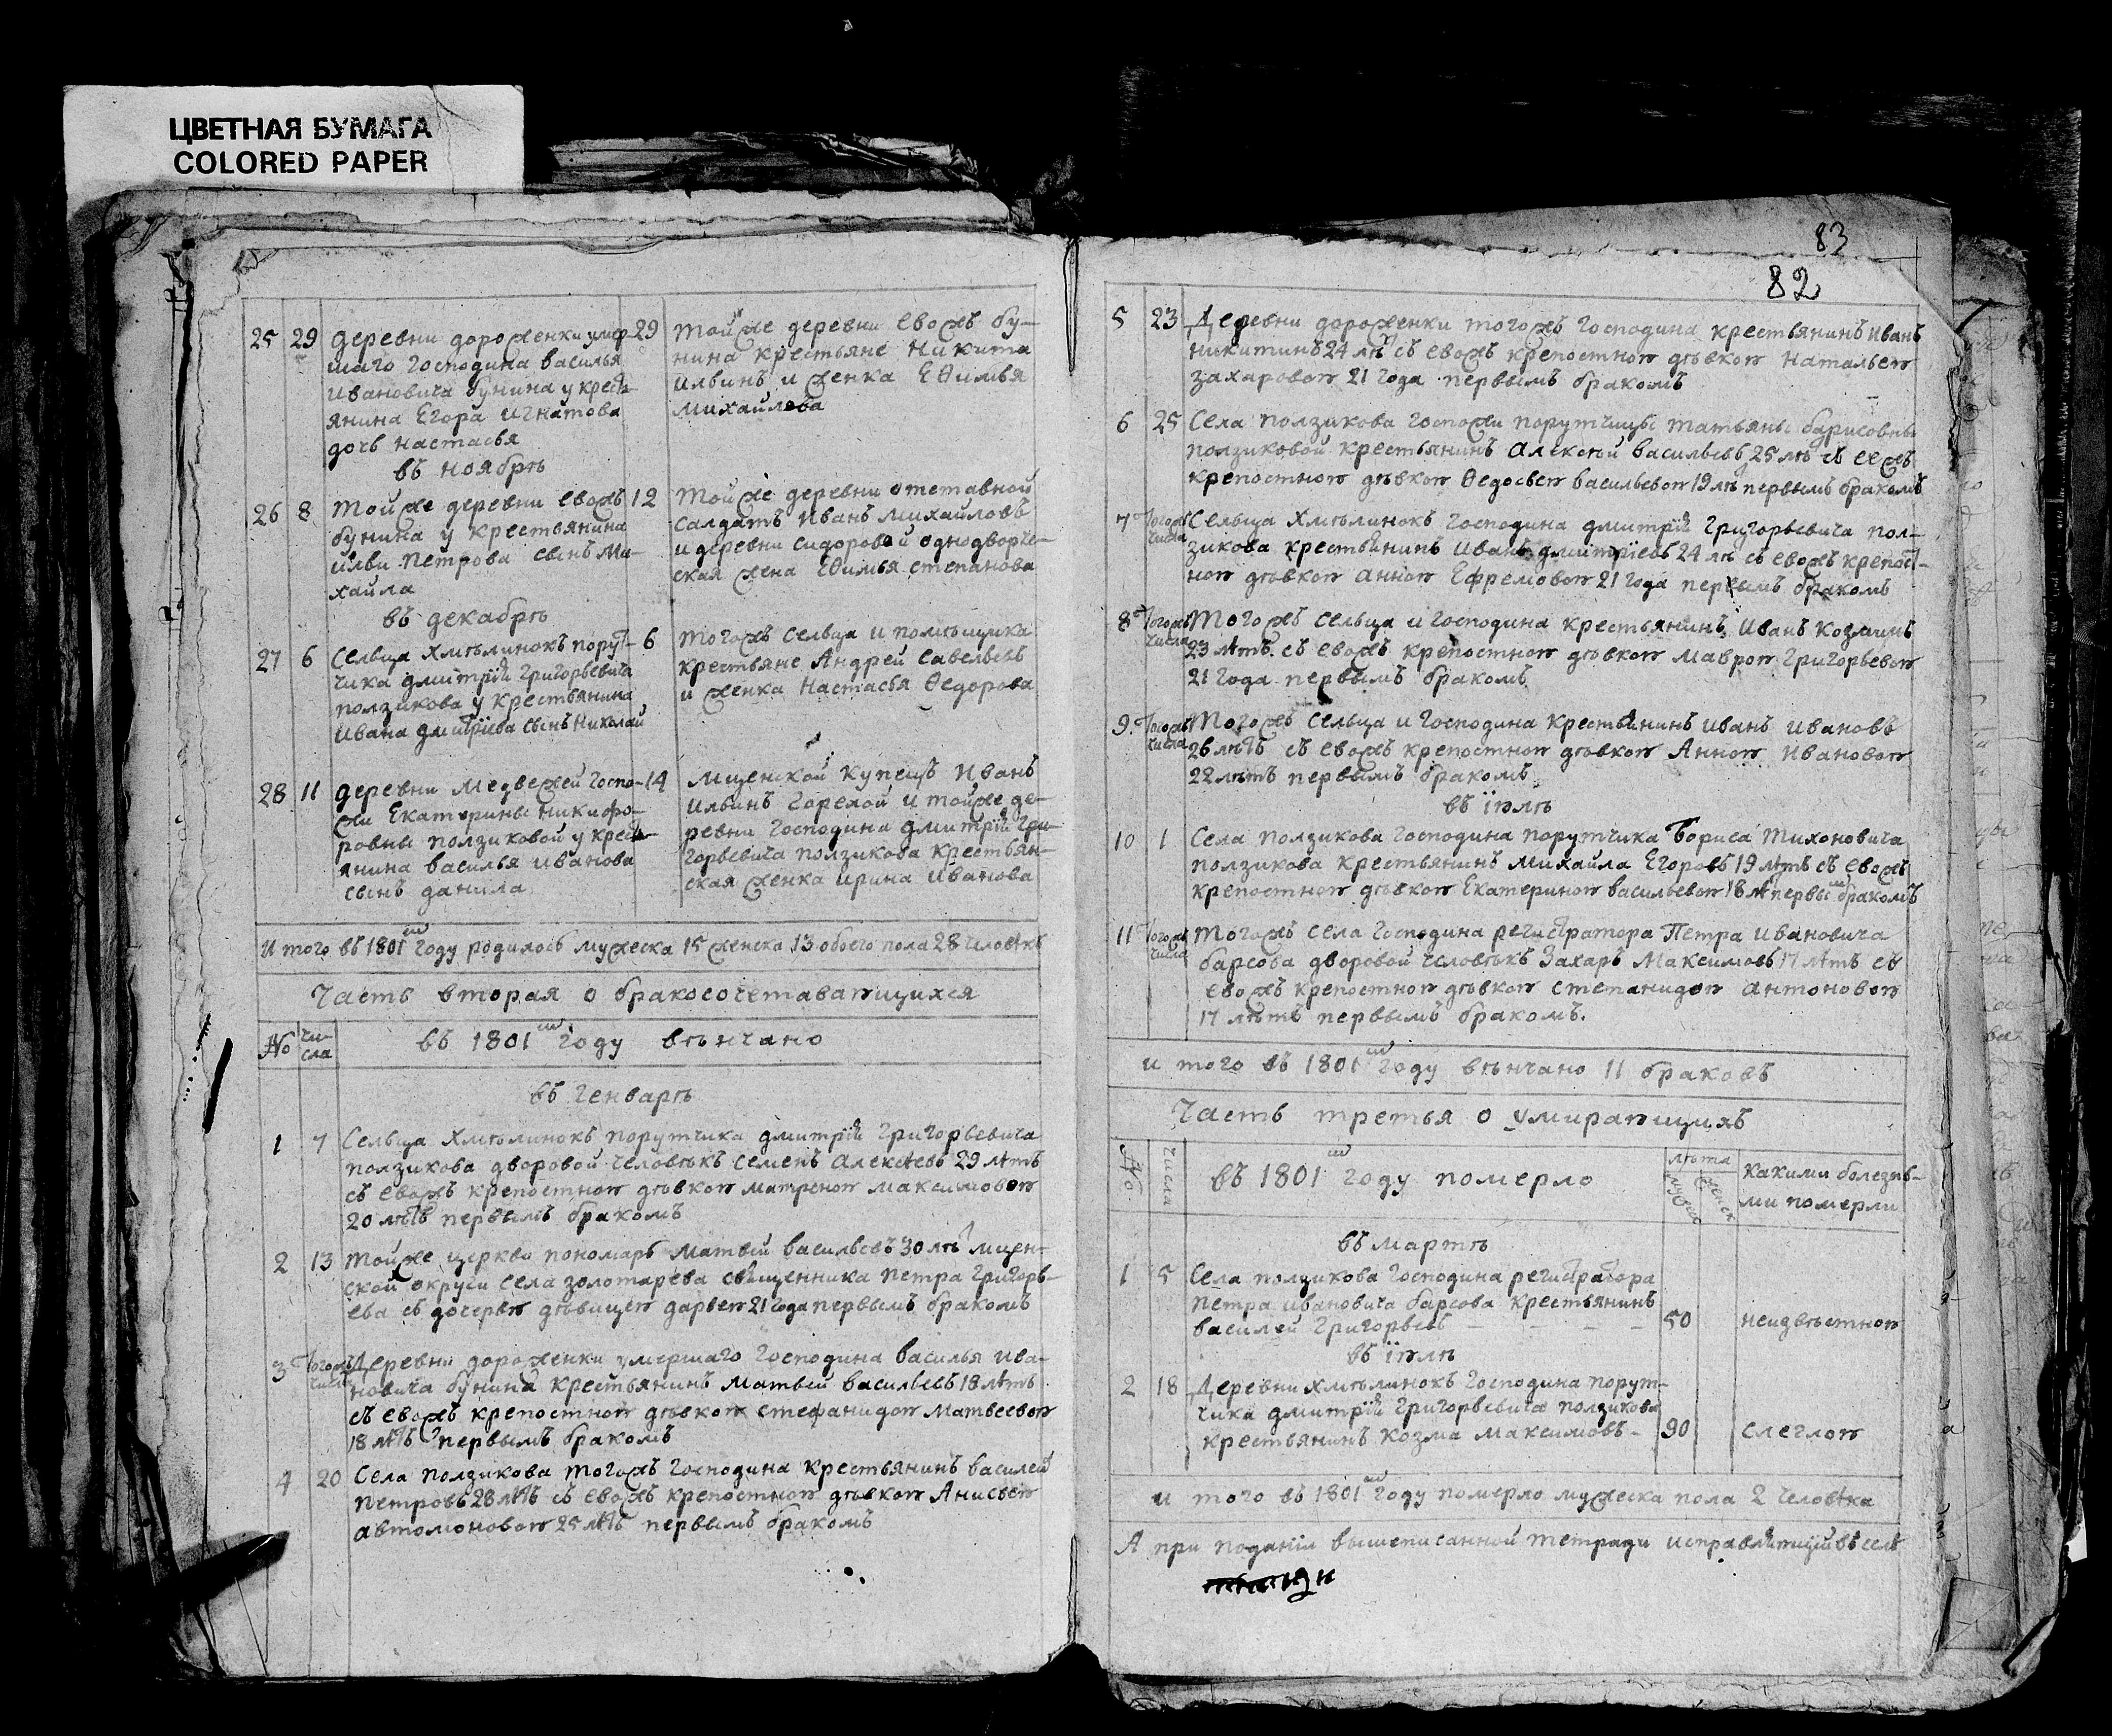 ЦВЕТНАЯ БУМАГА
COLORED PAPER
25 29 деревни дороженки умер-
шаго господина василья
ивановича бунина у крест-
янина Егора игнатова
дочь настасья
29 тойже деревни евожъ бу-
нина крестьяне никита
ильинъ и женка Еѳимья
михайлова
въ ноябрѣ
26 8 тойже деревни евожъ
бунина у крестьянина
ильи петрова сынъ ми-
хайла
12 тойже деревни отставной
салдатъ иванъ михайловъ
и деревни сидоровой однодворче-
ская жена Еѳимья степанова
въ декабрѣ
27 6 Сельца хмѣлинокъ порут-
чика дмитрїй григорьевича
ползикова у крестьянина
ивана дмитрїева сынъ николай
6 тогожъ сельца и помѣщика
крестьяне Андрей савельевъ
и женка настасья Ѳедорова
28 11 деревни медвежей госпо-
жи Екатерины никифо-
ровны ползиковой у крест-
янина василья иванова
сынъ данила
14 мценской купецъ иванъ
ильинъ горелой и тойже де-
ревни господина дмитрїй гри-
горьевича ползикова крестьян-
ская женка ирина иванова
и того въ 1801м году родилось мужеска 15 женска 13 обоего пола 28 человѣкъ
Часть вторая о бракосочетавающихся
No чи-
сла
въ 1801м году вѣнчано
въ генварѣ
1 7 Сельца хмѣлинокъ порутчика дмитрїй григорьевича
ползикова дворовой человѣкъ семенъ алексѣевъ 29 лѣтъ
съ евожъ крепостною дѣвкою матреною максимовою
20 лѣтъ первымъ бракомъ
2 13 тойже церкви пономарь матвей васильевъ 30 лѣтъ мцен-
ской округи села золотарева священника петра григорь-
ева съ дочерью дѣвицею дарьею 21 года первымъ бракомъ
3 тогожъ числа деревни дороженки умершаго господина василья ива-
новича бунина крестьянинъ матвей васильевъ 18 лѣтъ
съ евожъ крепостною дѣвкою стефанидою матвеевою
18 лѣтъ первымъ бракомъ
4 20 Села ползикова тогожъ господина крестьянинъ василей
петровъ 28 лѣтъ съ евожъ крепостною дѣвкою Анисьею
автомоновою 25 лѣтъ первымъ бракомъ
83
82
5 23 Деревни дороженки тогожъ господина крестьянинъ иванъ
никитинъ 24 лѣтъ съ евожъ крепостною дѣвкою натальею
захаровою 21 года первымъ бракомъ
6 25 Села ползикова госпожи порутчицы татьяны барисовны
ползиковой крестьянинъ алексѣй васильевъ 25 лѣтъ съ еежъ
крепостною дѣвкою Ѳедосьею васильевою 19 лѣтъ первымъ бракомъ
7 тогожъ числа Сельца хмѣлинокъ господина дмитрїй григорьевича пол-
зикова крестьянинъ иванъ дмитрїевъ 24 лѣтъ съ евожъ крепост-
ною дѣвкою анною Ефремовою 21 года первымъ бракомъ
8 тогожъ числа Тогожъ сельца и господина крестьянинъ иванъ козминъ
23 лѣтъ съ евожъ крепостною дѣвкою маврою григорьевою
21 года первымъ бракомъ
9 тогожъ числа Тогожъ сельца и господина крестьянинъ иванъ ивановъ
26 лѣтъ съ евожъ крепостною дѣвкою Анною ивановою
22 лѣтъ первымъ бракомъ
въ їюлѣ
10 1 Села ползикова господина порутчика Бориса тихоновича
ползикова крестьянинъ михайла Егоровъ 19 лѣтъ съ евожъ
крепостною дѣвкою Екатериною васильевою 18 лѣтъ первымъ бракомъ
11 тогожъ числа тогожъ села господина регистратора Петра ивановича
барсова дворовой человѣкъ Захаръ максимовъ 17 лѣтъ съ
евожъ крепостною дѣвкою степанидою антоновою
17 лѣтъ первымъ бракомъ.
и того въ 1801м году вѣнчано 11 браковъ
Часть третья о умирающихъ
No числа въ 1801м году померло лѣта мужск женск какими болезнь-
ми померли
въ мартѣ
1 5 Села ползикова господина регистратора
петра ивановича барсова крестьянинъ
василей григорьевъ 50 неизвѣстною
въ їюлѣ
2 18 Деревни хмѣлинокъ господина порут-
чика дмитрїй григорьевича ползикова
крестьянинъ козма максимовъ 90 слеглою
и того въ 1801м году померло мужеска пола 2 человѣка
А при поданїи вышеписанной тетради исправляющїй въ селѣ